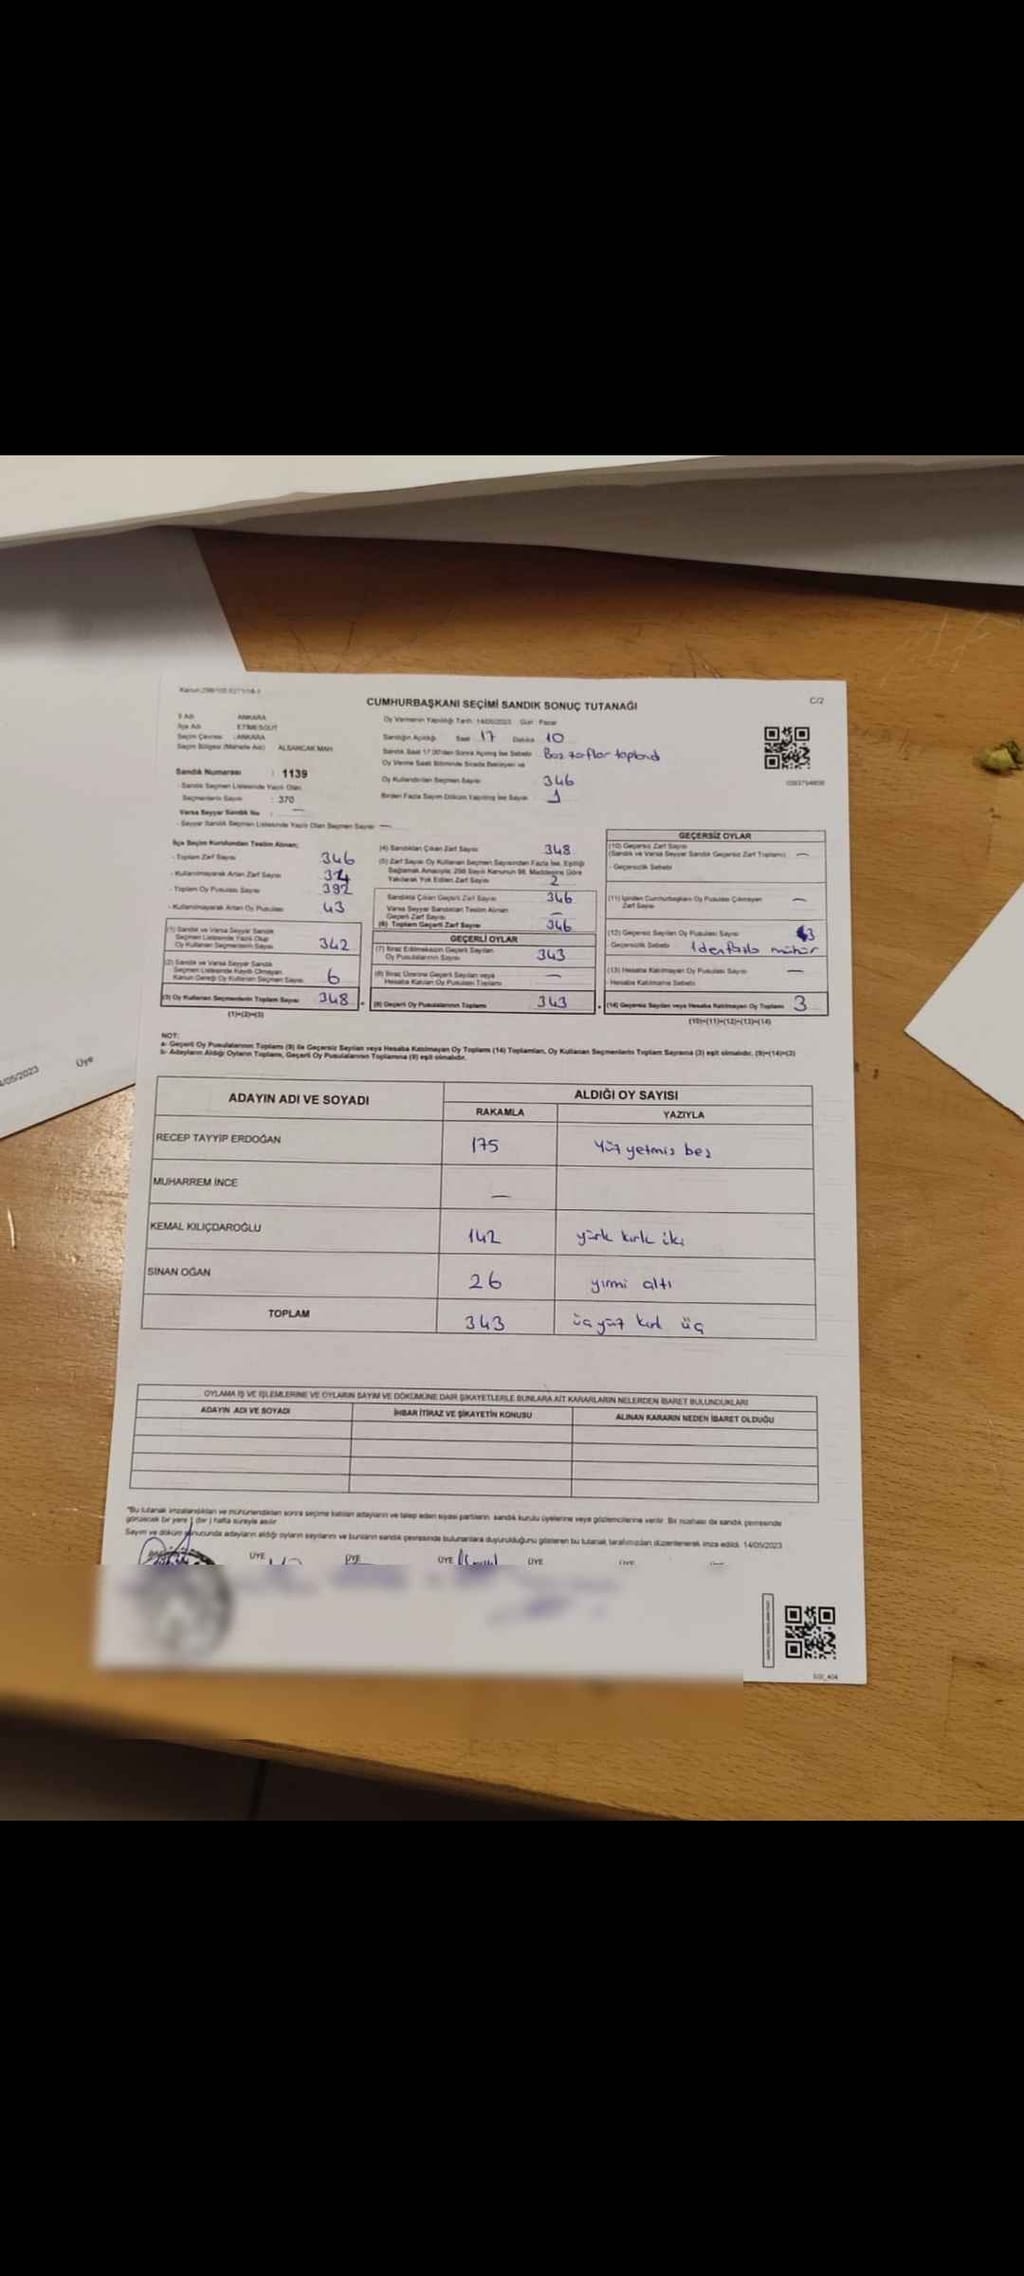 CUMHURBAŞKANI SEÇİMİ SANDIK SONUÇ TUTANAĞI
C/2
İl Adı ANKARA
İlçe Adı ETİMESGUT
Seçim Çevresi : ANKARA
Seçim Bölgesi (Mahalle Adı) ALSANCAK MAH
Sandık Numarası : 1139
Sandık Seçmen Listesinde Yazılı Olan
Seçmenlerin Sayısı : 370
Varsa Seyyar Sandık No : —
- Seyyar Sandık Seçmen Listesinde Yazılı Olan Seçmen Sayısı —
Oy Vermenin Yapıldığı Tarih: 14/05/2023 Gün : Pazar
Sandığın Açıldığı Saat 17 Dakika 10
Sandık Saat 17.00'den Sonra Açılmış İse Sebebi Boş zaflar topland
Oy Verme Saati Bitiminde Sırada Bekleyen ve
Oy Kullandırılan Seçmen Sayısı 346
Birden Fazla Sayım Döküm Yapılmış İse Sayısı 1
İlçe Seçim Kurulundan Teslim Alınan;
- Toplam Zarf Sayısı 346
- Kullanılmayarak Artan Zarf Sayısı
- Toplam Oy Pusulası Sayısı 392
- Kullanılmayarak Artan Oy Pusulası 43
(1) Sandık ve Varsa Seyyar Sandık
Seçmen Listesinde Yazılı Olup
Oy Kullanan Seçmenlerin Sayısı 342
(2) Sandık ve Varsa Seyyar Sandık
Seçmen Listesinde Kayıtlı Olmayan
Kanun Gereği Oy Kullanan Seçmen Sayısı 6
(3) Oy Kullanan Seçmenlerin Toplam Sayısı 348
(1)+(2)=(3)
(4) Sandıktan Çıkan Zarf Sayısı 348
(5) Zarf Sayısı Oy Kullanan Seçmen Sayısından Fazla İse, Eşitliği
Sağlamak Amacıyla, 298 Sayılı Kanunun 98. Maddesine Göre
Yakılarak Yok Edilen Zarf Sayısı 2
Sandıkta Çıkan Geçerli Zarf Sayısı 346
Varsa Seyyar Sandıktan Teslim Alınan
Geçerli Zarf Sayısı —
(6) Toplam Geçerli Zarf Sayısı 346
GEÇERLİ OYLAR
(7) İtiraz Edilmeksizin Geçerli Sayılan
Oy Pusulalarının Sayısı 343
(8) İtiraz Üzerine Geçerli Sayılan veya
Hesaba Katılan Oy Pusulalarının Toplamı —
(9) Geçerli Oy Pusulalarının Toplamı 343
GEÇERSİZ OYLAR
(10) Geçersiz Zarf Sayısı
(Sandık ve Varsa Seyyar Sandık Geçersiz Zarf Toplamı) —
- Geçersizlik Sebebi
(11) İçinden Cumhurbaşkanı Oy Pusulası Çıkmayan
Zarf Sayısı —
(12) Geçersiz Sayılan Oy Pusulası Sayısı 3
- Geçersizlik Sebebi 1den fazla mühür
(13) Hesaba Katılmayan Oy Pusulası Sayısı —
- Hesaba Katılmama Sebebi
(14) Geçersiz Sayılan veya Hesaba Katılmayan Oy Toplamı 3
(10)+(11)+(12)+(13)=(14)
NOT:
a- Geçerli Oy Pusulalarının Toplamı (9) ile Geçersiz Sayılan veya Hesaba Katılmayan Oy Toplamı (14) Toplamları, Oy Kullanan Seçmenlerin Toplam Sayısına (3) eşit olmalıdır. (9)+(14)=(3)
b- Adayların Aldığı Oyların Toplamı, Geçerli Oy Pusulalarının Toplamına (9) eşit olmalıdır.
ADAYIN ADI VE SOYADI
ALDIĞI OY SAYISI
RAKAMLA YAZIYLA
RECEP TAYYİP ERDOĞAN 175 Yüz yetmiş beş
MUHARREM İNCE —
KEMAL KILIÇDAROĞLU 142 yürk kırk iki
SİNAN OĞAN 26 yirmi altı
TOPLAM 343 üç yüz kırk üç
OYLAMA İŞ VE İŞLEMLERİNE VE OYLARIN SAYIM VE DÖKÜMÜNE DAİR ŞİKAYETLERLE BUNLARA AİT KARARLARIN NELERDEN İBARET BULUNDUKLARI
ADAYIN ADI VE SOYADI İHBAR İTİRAZ VE ŞİKAYETİN KONUSU ALINAN KARARIN NEDEN İBARET OLDUĞU
"Bu tutanak imzalandıktan ve mühürlendikten sonra seçime katılan adayların ve talep eden siyasi partilerin, sandık kurulu üyelerine veya gözlemcilerine verilir. Bir nüshası da sandık çevresinde
görülecek bir yere 1 (bir) hafta süreyle asılır
Sayım ve döküm sonucunda adayların aldığı oyların sayılarını ve bunların sandık çevresinde bulunanlara duyurulduğunu gösteren bu tutanak tarafımızdan düzenlenerek imza edildi. 14/05/2023
ÜYE ÜYE ÜYE ÜYE
/05/2023 Üye